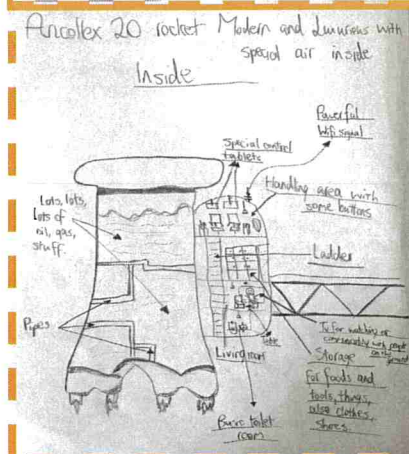 Ancollex 20 rocket Modern and Luxurious with
special air inside
Inside
Powerful
Wifi signal
Special control
tablets
Handling area with
some buttons
Lots, lots,
lots of
oil, gas,
stuff.
Ladder
Pipes
Tv for watching or
people
on the ground
Living room
Storage
for foods and
tools, things,
also clothes,
shoes.
toilet
room